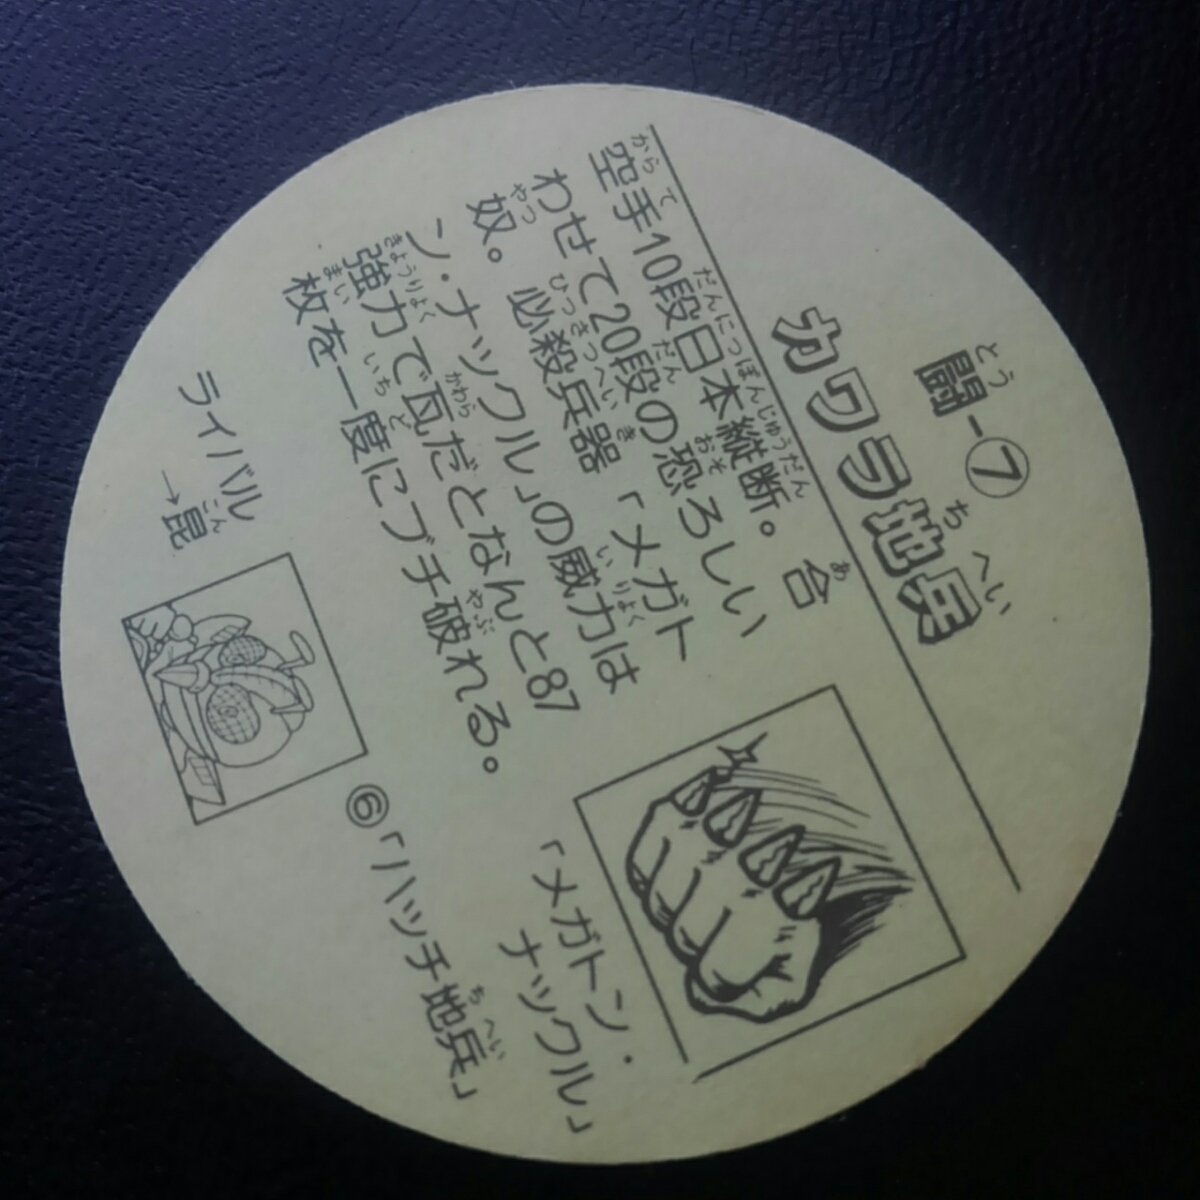 闘-⑦
カワラ地兵
空手10段日本縦断。合
わせて20段の恐ろしい
奴。必殺兵器「メガト
ン・ナックル」の威力は
強力で瓦だとなんと87
枚を一度にブチ破れる。
「メガトン・
ナックル」
ライバル
→昆
⑥「ハッチ地兵」